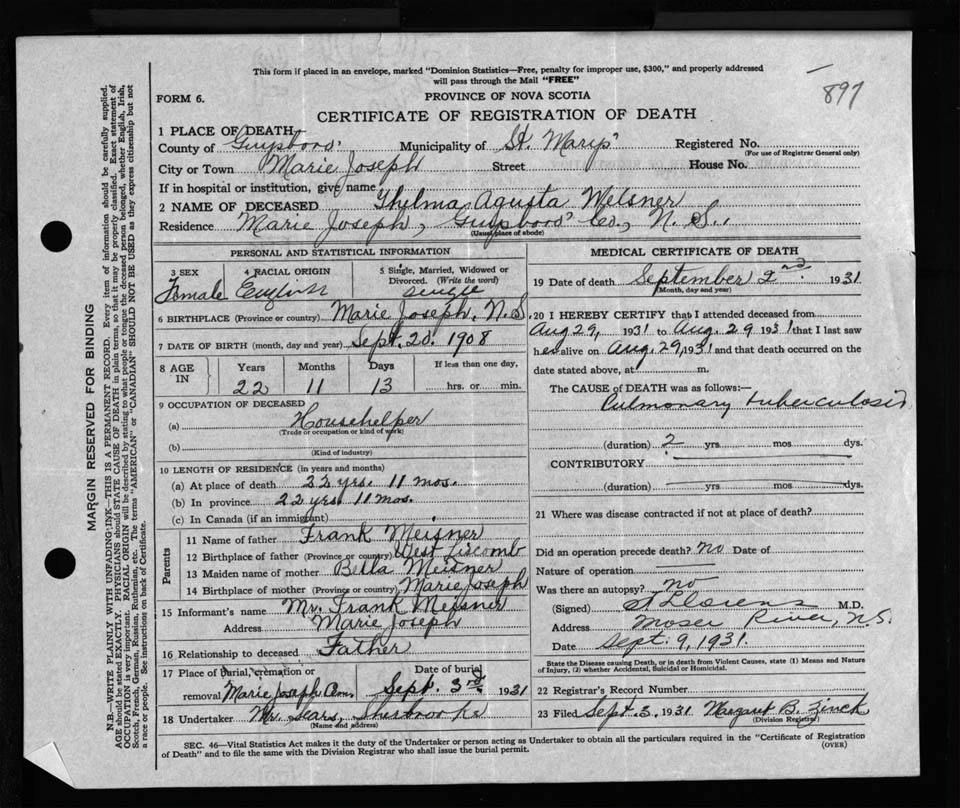 This form if placed in an envelope, marked "Dominion Statistics—Free, penalty for improper use, $300," and properly addressed
will pass through the Mail "FREE"
897
FORM 6.
PROVINCE OF NOVA SCOTIA
CERTIFICATE OF REGISTRATION OF DEATH
1 PLACE OF DEATH
County of Guysboro' Municipality of St. Marys' Registered No.
(For use of Registrar General only)
City or Town Marie Joseph Street House No.
If in hospital or institution, give name
2 NAME OF DECEASED Thelma Agusta Meisner
Residence Marie Joseph, Guysboro' Co., N. S.,
(Usual place of abode)
PERSONAL AND STATISTICAL INFORMATION
3 SEX 4 RACIAL ORIGIN 5 Single, Married, Widowed or
Divorced. (Write the word)
Female English Single
6 BIRTHPLACE (Province or country) Marie Joseph, N.S.
7 DATE OF BIRTH (month, day and year) Sept. 20. 1908
8 AGE IN Years Months Days If less than one day,
22 11 13 hrs. or min.
9 OCCUPATION OF DECEASED
(a) Househelper
(Trade or occupation or kind of work)
(b)
(Kind of industry)
10 LENGTH OF RESIDENCE (in years and months)
(a) At place of death 22 yrs. 11 mos.
(b) In province 22 yrs. 11 mos.
(c) In Canada (if an immigrant)
Parents
11 Name of father Frank Meisner
12 Birthplace of father (Province or country) West Liscomb
13 Maiden name of mother Bella Meisner
14 Birthplace of mother (Province or country) Marie Joseph
15 Informant's name Mr. Frank Meisner
Address Marie Joseph
16 Relationship to deceased Father
17 Place of burial, cremation or Date of burial
removal Marie Joseph Cem. Sept. 3rd 1931
18 Undertaker Mr. Sears, Sherbrooke
(Name and address)
MEDICAL CERTIFICATE OF DEATH
19 Date of death September 2nd. 1931
(Month, day and year)
20 I HEREBY CERTIFY that I attended deceased from
Aug 29, 1931 to Aug. 29 1931 that I last saw
her alive on Aug. 29, 1931 and that death occurred on the
date stated above, at m.
The CAUSE OF DEATH was as follows:—
Pulmonary tuberculosis
(duration) 2 yrs mos dys.
CONTRIBUTORY
(duration) yrs mos dys.
21 Where was disease contracted if not at place of death?
Did an operation precede death? no Date of
Nature of operation
Was there an autopsy? no
(Signed) M.D.
Address Moser River, N.S.
Date Sept. 9, 1931.
State the Disease causing Death, or in death from Violent Causes, state (1) Means and Nature
of Injury, (2) whether Accidental, Suicidal or Homicidal.
22 Registrar's Record Number
23 Filed Sept 3. 1931 Margaret B. Zinck
(Division Registrar)
SEC. 46—Vital Statistics Act makes it the duty of the Undertaker or person acting as Undertaker to obtain all the particulars required in the "Certificate of Registration
of Death" and to file the same with the Division Registrar who shall issue the burial permit.
(OVER)
MARGIN RESERVED FOR BINDING
N.B.—WRITE PLAINLY WITH UNFADING INK—THIS IS A PERMANENT RECORD. Every item of information should be carefully supplied.
AGE should be stated EXACTLY. PHYSICIANS should STATE CAUSE OF DEATH in plain terms, so that it may be properly classified. Exact statement of
OCCUPATION is very important. RACIAL ORIGIN will be described by stating to what people or tongue the deceased person belonged, whether English, Irish,
Scotch, French, German, Russian, Ruthenian, etc. The terms "AMERICAN" or "CANADIAN" SHOULD NOT BE USED as they express citizenship but not
a race or people. See instructions on back of Certificate.